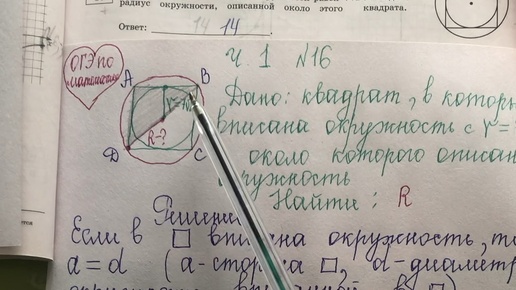 радиус окружности, описанной около этого квадрата.
Ответ: 14 14.
ОГЭ по математике
Ч. 1 №16
A B
r=
R-?
D C
Дано: квадрат, в которы
вписана окружность с r=
около которого описан
окружность
Найти: R
Решение
Если в □ вписана окружность, то
a = d (a-сторона □, d-диаметр